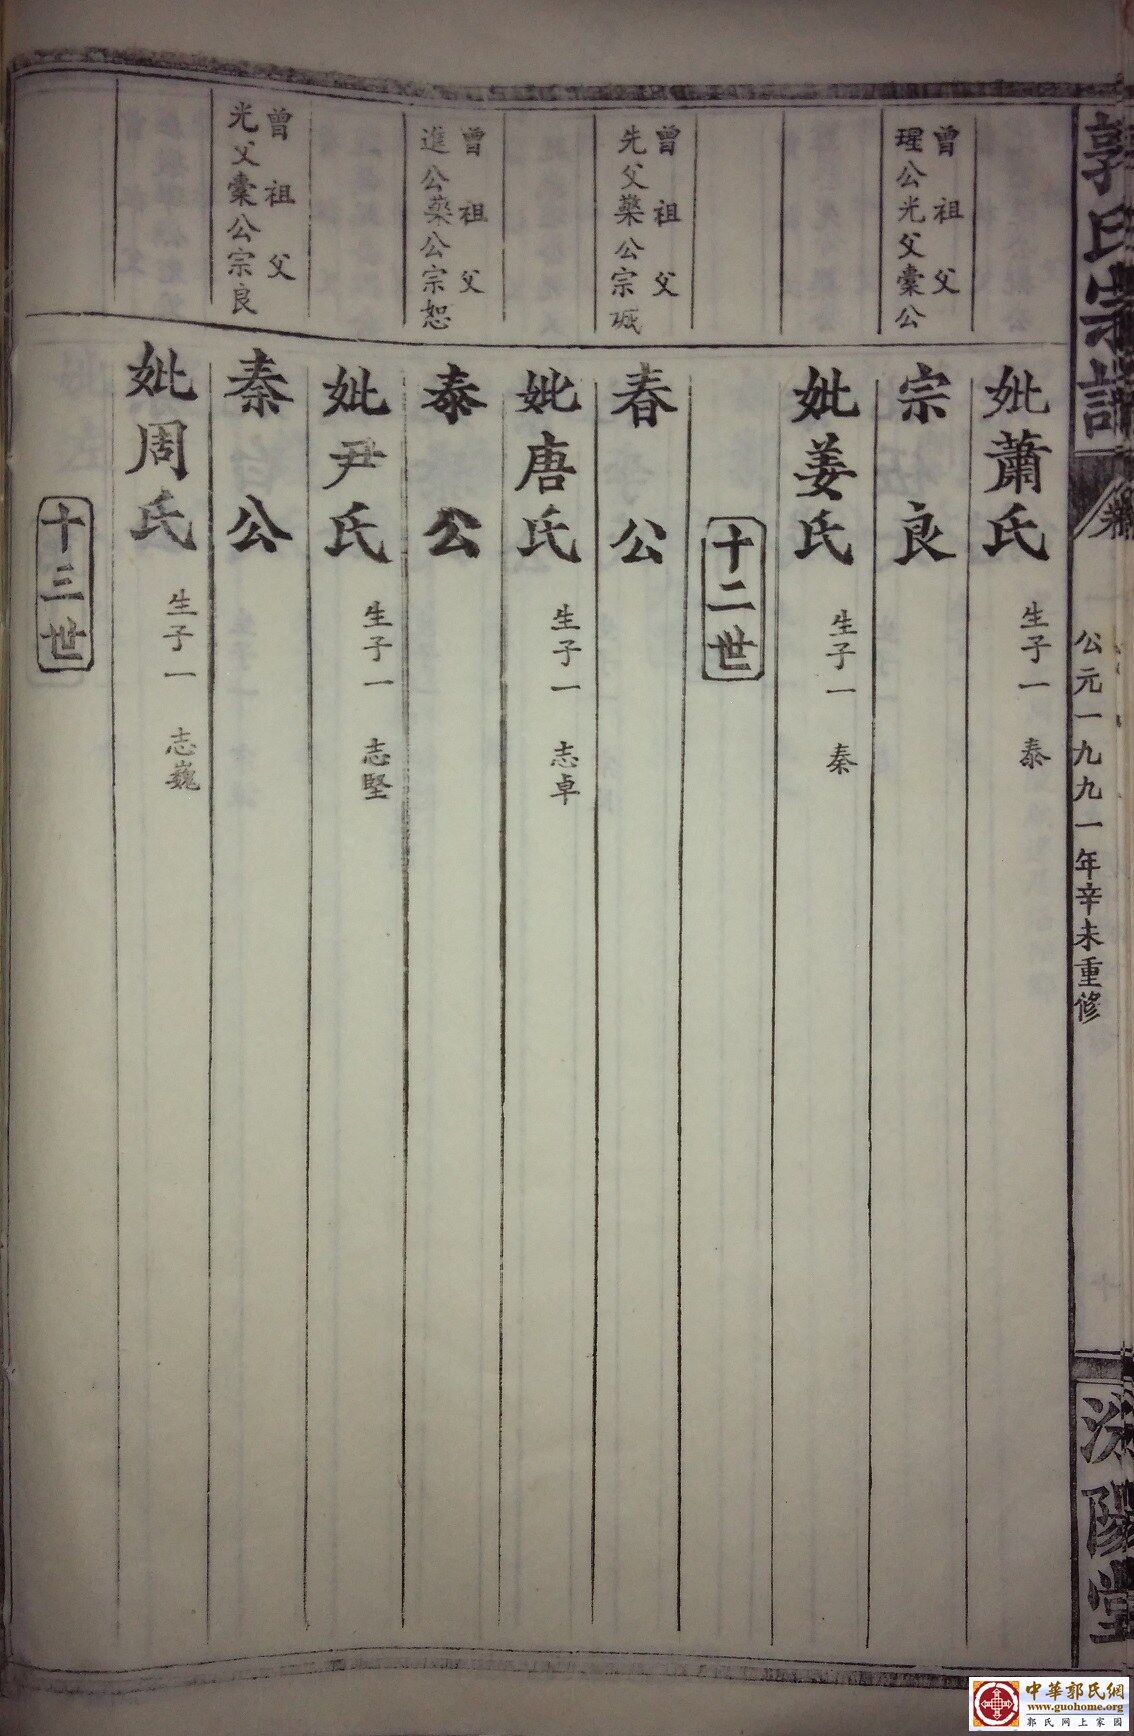 郭氏宗譜
卷
公元一九九一年辛未重修
陽堂
妣蕭氏 生子一 泰
曾祖父
瑆公光父橐公
宗良
妣姜氏 生子一 秦
十二世
曾祖父
先父藥公宗
春公
妣唐氏 生子一 志卓
曾祖父
進公藥公宗恕
泰公
妣尹氏 生子一 志堅
曾祖父
光父橐公宗良
秦公
妣周氏 生子一 志巍
十三世
中華郭氏網
www.guohome.org
郭氏网上家园